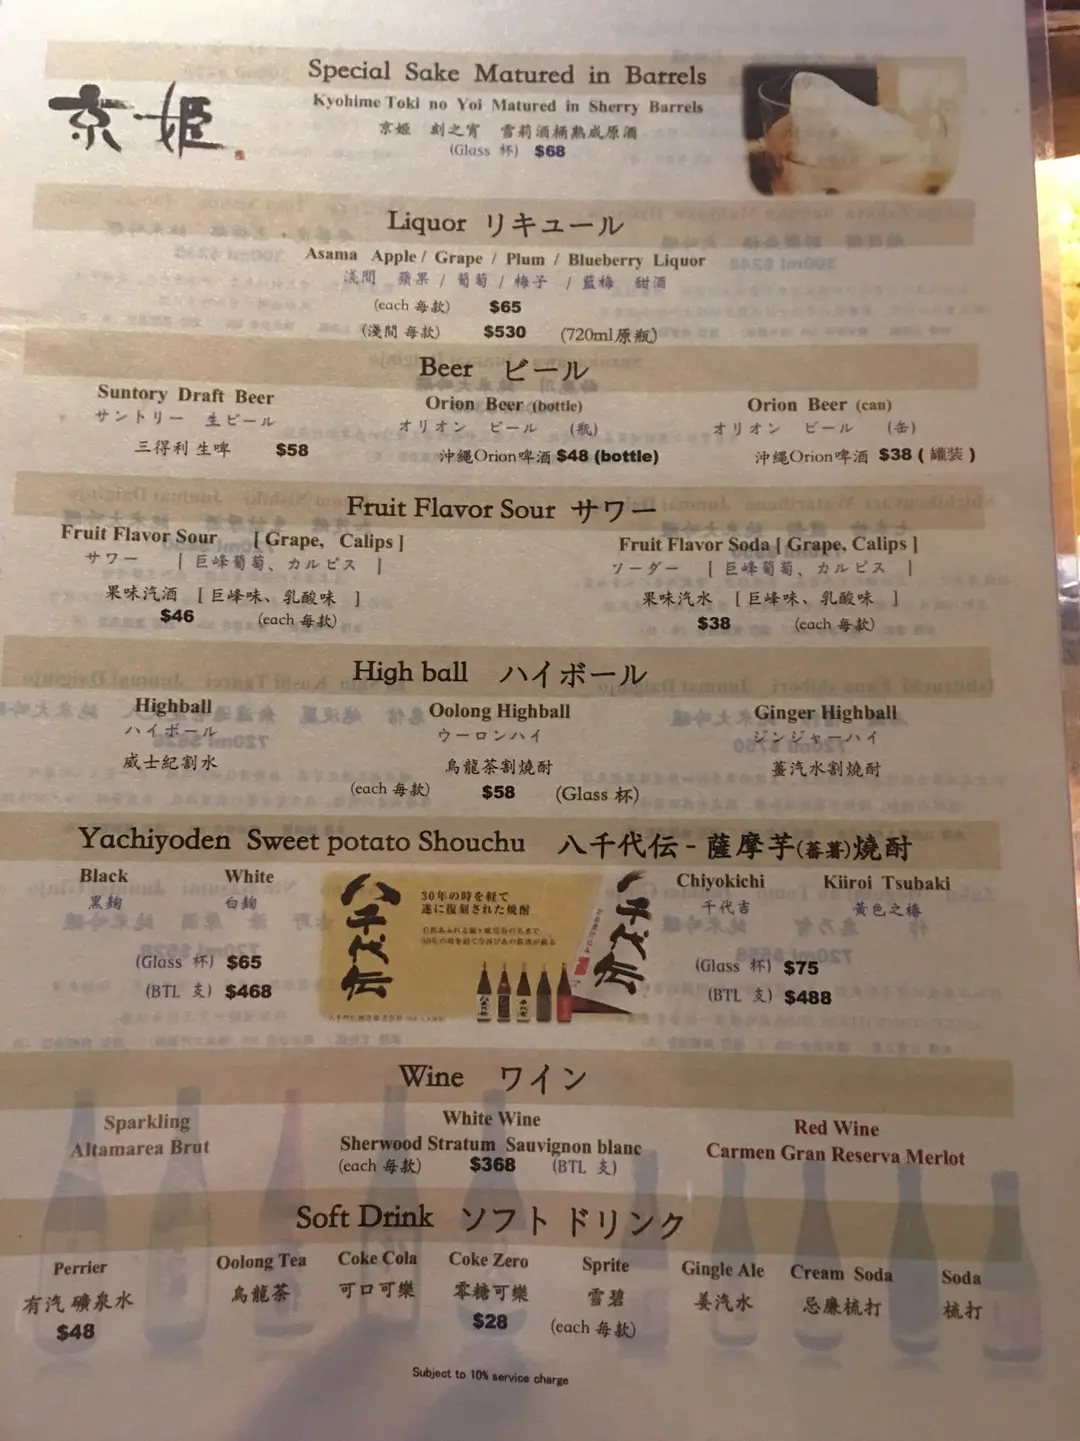 京姫
Special Sake Matured in Barrels
Kyohime Toki no Yoi Matured in Sherry Barrels
京姫 刻之宵 雪莉酒桶熟成原酒
(Glass 杯) $68
Liquor リキュール
Asama Apple / Grape / Plum / Blueberry Liquor
淺間 蘋果 / 葡萄 / 梅子 / 藍梅 甜酒
(each 每款) $65
(淺間 每款) $530 (720ml原瓶)
Beer ビール
Suntory Draft Beer
サントリー 生ビール
三得利 生啤 $58
Orion Beer (bottle)
オリオン ビール (瓶)
沖縄Orion啤酒 $48 (bottle)
Orion Beer (can)
オリオン ビール (缶)
沖縄Orion啤酒 $38 ( 罐装 )
Fruit Flavor Sour サワー
Fruit Flavor Sour [ Grape, Calips ]
サワー [ 巨峰葡萄、カルピス ]
果味汽酒 [ 巨峰味、乳酸味 ]
$46 (each 每款)
Fruit Flavor Soda [ Grape, Calips ]
ソーダー [ 巨峰葡萄、カルピス ]
果味汽水 [ 巨峰味、乳酸味 ]
$38 (each 每款)
High ball ハイボール
Highball
ハイボール
威士紀割水
Oolong Highball
ウーロンハイ
烏龍茶割燒酎
Ginger Highball
ジンジャーハイ
薑汽水割燒酎
(each 每款) $58 (Glass 杯)
Yachiyoden Sweet potato Shouchu 八千代伝 - 薩摩芋(蕃薯)焼酎
Black
黒麹
White
白麹
(Glass 杯) $65
(BTL 支) $468
八千代伝
30年の時を経て
遂に復刻された焼酎
八千代伝
Chiyokichi
千代吉
Kiiroi Tsubaki
黃色之椿
(Glass 杯) $75
(BTL 支) $488
Wine ワイン
Sparkling
Altamarea Brut
White Wine
Sherwood Stratum Sauvignon blanc
(each 每款) $368 (BTL 支)
Red Wine
Carmen Gran Reserva Merlot
Soft Drink ソフト ドリンク
Perrier
有汽 礦泉水
$48
Oolong Tea
烏龍茶
Coke Cola
可口可樂
Coke Zero
零糖可樂
Sprite
雪碧
Gingle Ale
姜汽水
Cream Soda
忌廉梳打
Soda
梳打
$28 (each 每款)
Subject to 10% service charge